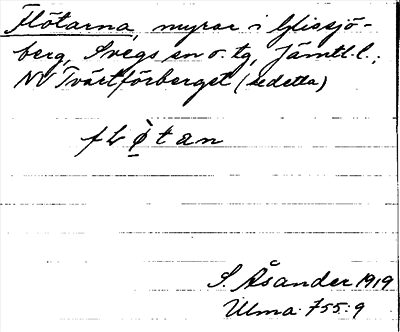 Flötarna, myrar i Glissjö-
berg, Svegs sn o. tg, Jämtl. l.;
NV Tvärtförberget (se detta)
flø̀tan
S. Åsander 1919
Ulma 755:9